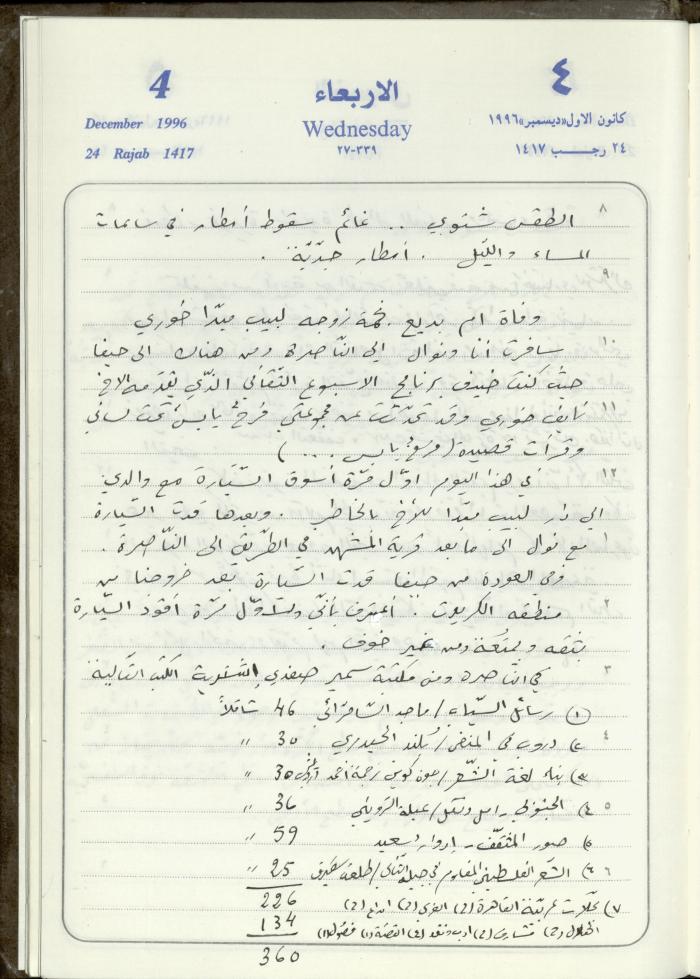 4
الاربعاء
٤
December 1996
Wednesday
كانون الاول «ديسمبر» ١٩٩٦
24 Rajab 1417
٢٧-٣٣٩
٢٤ رجب ١٤١٧
٨
الطقس شتوي .. غائم سقوط أمطار في ساعات
المساء والليل . أمطار جدّيّة .
٩
وفاة ام بديع نجمة زوجه لبيب ميدا خوري
١٠
سافرت أنا ونوال الى النّاصرة ومن هناك الى حيفا
حيث كنت ضيف برنامج الاسبوع الثقافي الذّي يقدّمه الاخ
١١
نايف خوري وقد تحدّثت عن مجموعتي فرح يابس تحت لساني
وقرأت قصيدة (فرح يابس ... )
١٢
في هذا اليوم اوّل مرّة أسوق السّيّارة مع والدي
الى دار لبيب ميدا للأخذ بالخاطر . وبعدها قدت السّيارة
١
مع نوال الى ما بعد قرية المشهد في الطّريق الى النّاصرة .
وفي العودة من حيفا قدت السّيارة بعد خروجنا من
٢
منطقه الكريوت . أعترف بأنّي ولاوّل مرّة أقود السّيارة
بثقه وبمتعة ومن غير خوف .
٣
في النّاصره ومن مكتبة سمير صفدي اشتريت الكتب التّالية
١) رسائل السّيّاب / ماجد السّامرّائي 46 شاقلاً
٤
٢) دروب في المنفى / بلند الحيدري 30 "
٣) بناء لغة الشّعر / جون كوين ترجمة أحمد درويش 30 "
٥
٤) الجنوبي - امل دنقل / عبلة الرّويني 36 "
٥) صور المثقّف - إدوارد سعيد 59 "
٦
٦) الشّعر الفلسطيني المقاوم في جيله الثّاني / طلعت سقيرق 25 "
٧) مجلّات عربيّة القاهرة (٢) العربي (٢) ابداع (٢) 226
الهلال (٢) مشارف (٢) ادب ونقد (٢) القصّة (١) فصول (١) 134
360